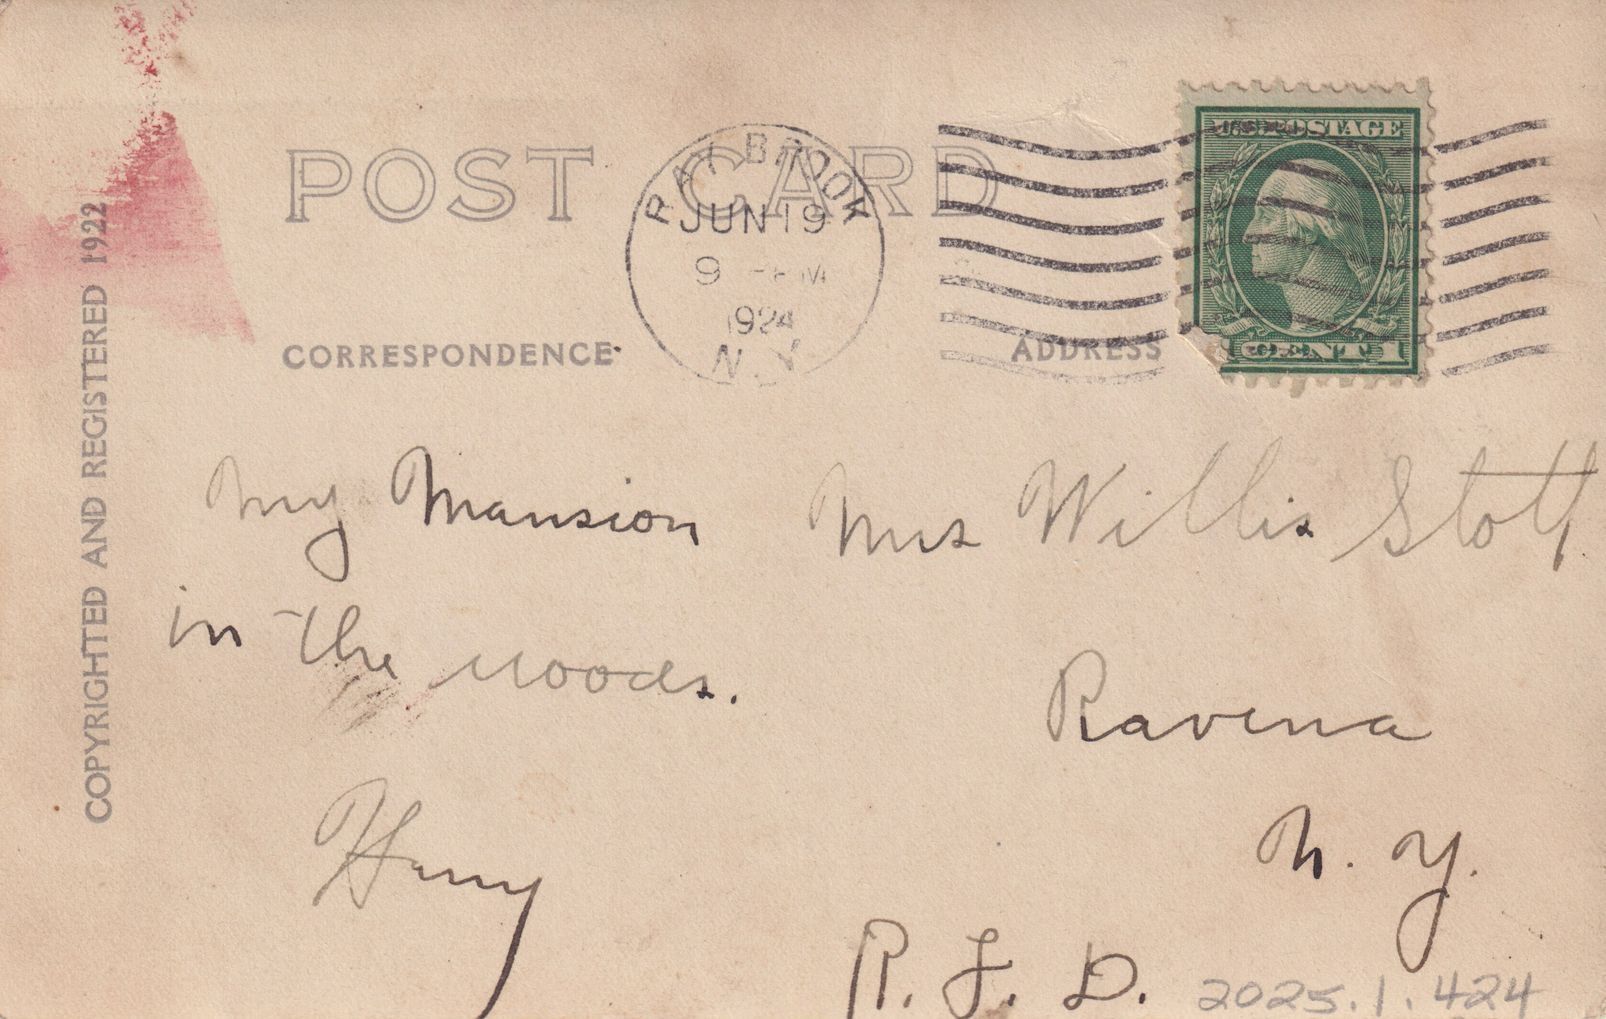 COPYRIGHTED AND REGISTERED 1922
POST CARD
RAY BROOK
JUN 19
9
1924
N.Y.
U.S. POSTAGE
1 CENT 1
CORRESPONDENCE
ADDRESS
My Mansion
in the woods.
Harry
Mrs Willis Stott
Ravena
N. Y.
R. F. D.
2025.1.424